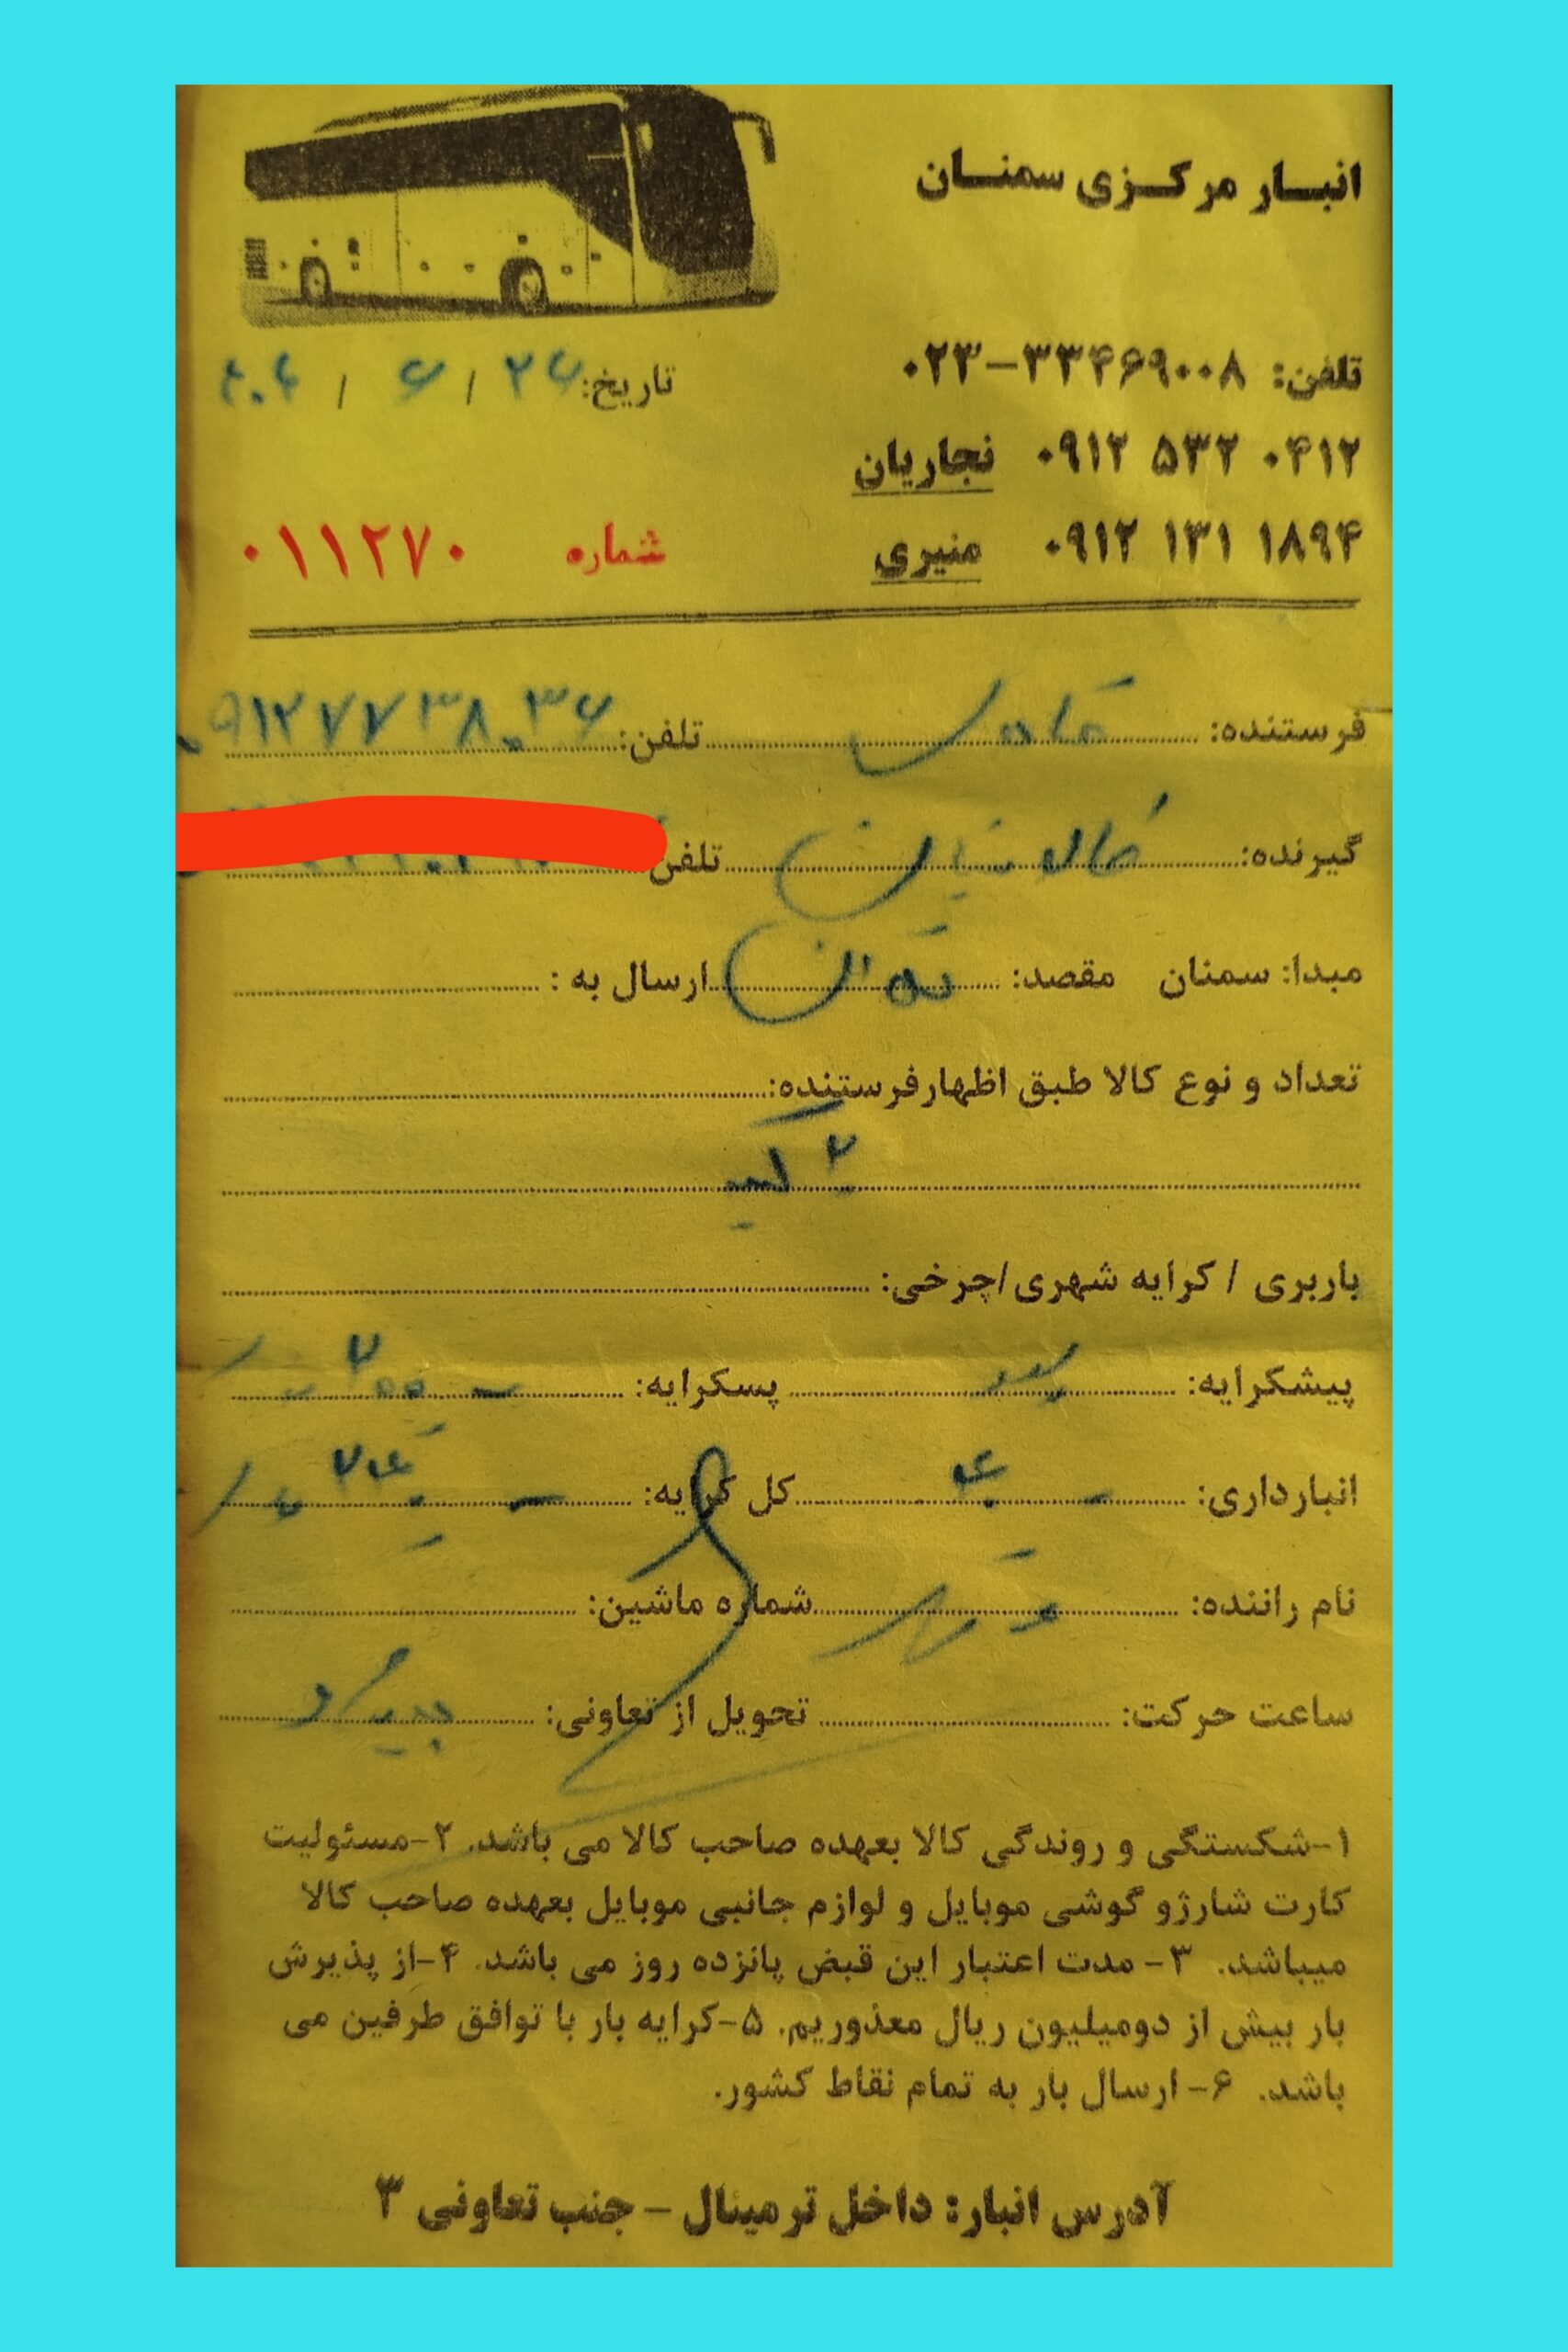 انبار مرکزی سمنان
تلفن: ۰۲۳-۳۳۴۶۹۰۰۸
تاریخ: ۲۶ / ۶ / ۴۰۴
۰۹۱۲ ۵۳۲ ۰۴۱۲ نجاریان
۰۹۱۲ ۱۳۱ ۱۸۹۴ منیری
شماره ۰۱۱۲۷۰
فرستنده: تلفن: ۰۹۱۲۷۷۳۸۰۳۶
گیرنده: تلفن
مبدا: سمنان مقصد: تهران ارسال به :
تعداد و نوع کالا طبق اظهارفرستنده:
باربری / کرایه شهری/چرخی:
پیشکرایه: پسکرایه:
انبارداری: کل کرایه:
نام راننده: شماره ماشین:
ساعت حرکت: تحویل از تعاونی:
۱-شکستگی و روندگی کالا بعهده صاحب کالا می باشد. ۲-مسئولیت
کارت شارژو گوشی موبایل و لوازم جانبی موبایل بعهده صاحب کالا
میباشد. ۳- مدت اعتبار این قبض پانزده روز می باشد. ۴-از پذیرش
بار بیش از دومیلیون ریال معذوریم. ۵-کرایه بار با توافق طرفین می
باشد. ۶- ارسال بار به تمام نقاط کشور.
آدرس انبار: داخل ترمینال – جنب تعاونی ۳